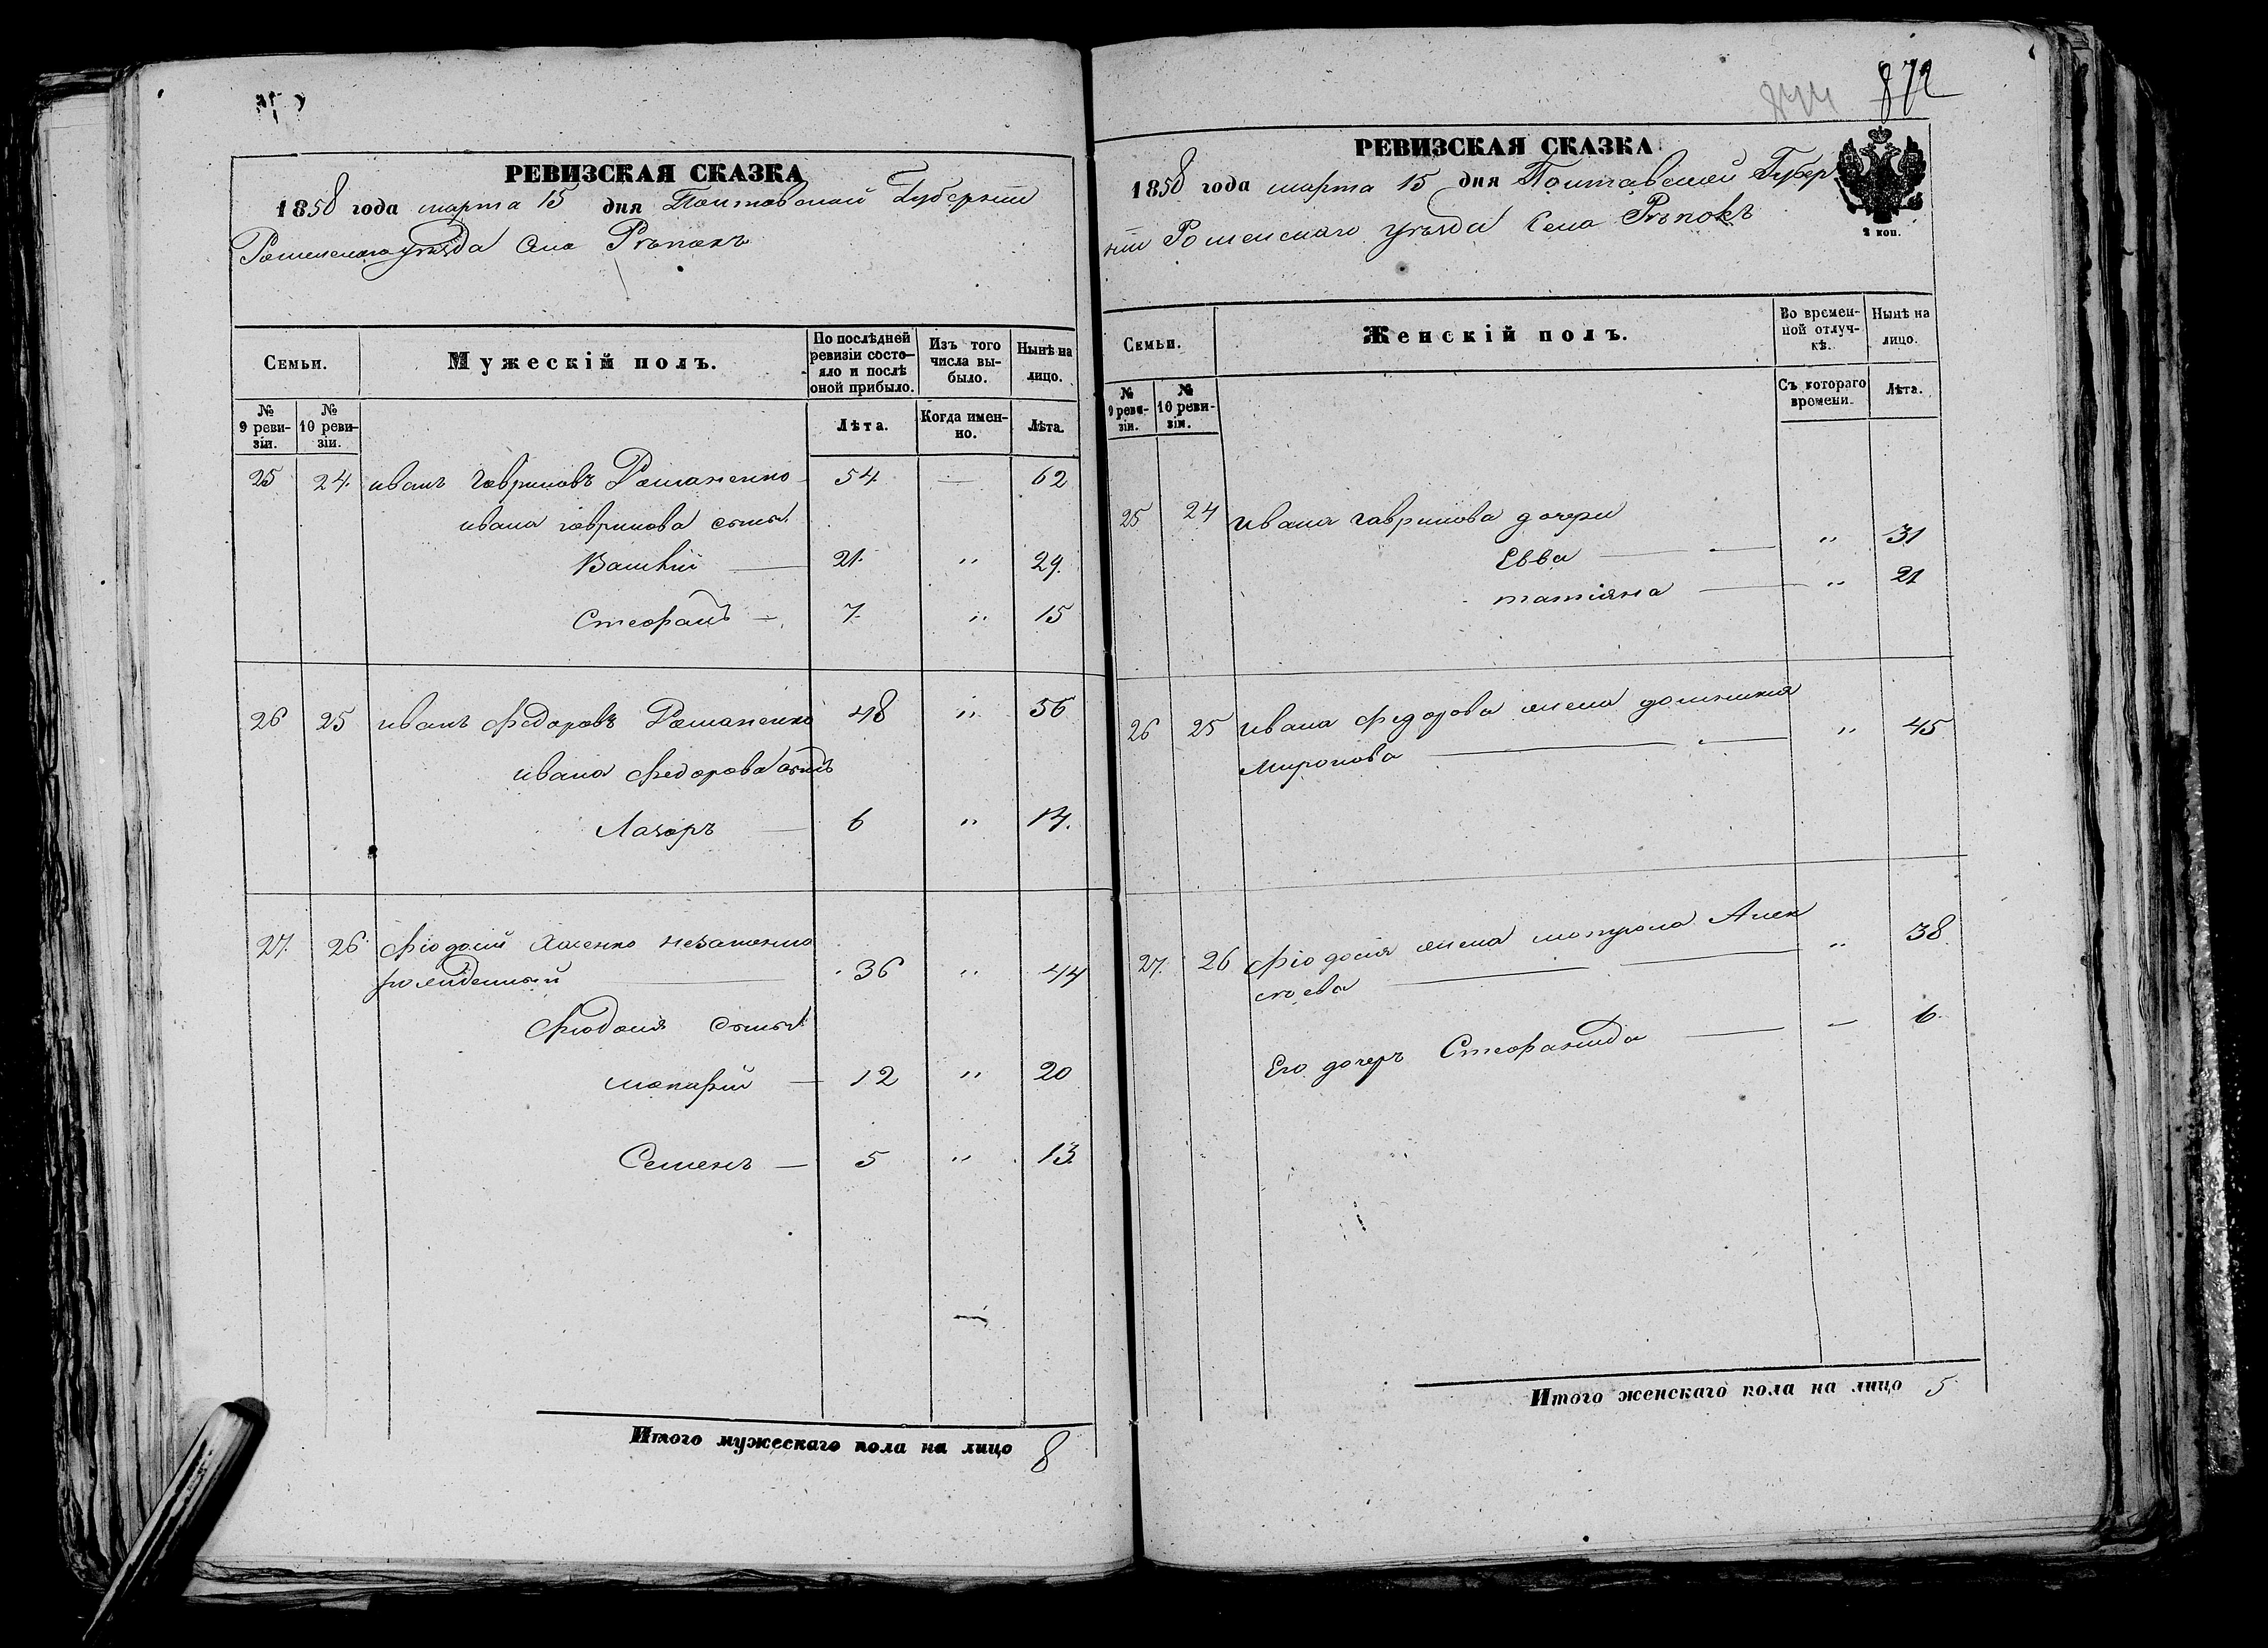 РЕВИЗСКАЯ СКАЗКА
1858 года марта 15 дня Полтавской Губерніи
Роменскаго уѣзда Села Рѣпокъ
Семьи.
Мужескій полъ.
По послѣдней ревизіи состояло и послѣ оной прибыло.
Изъ того числа выбыло.
Нынѣ на лицо.
№ 9 ревизіи.
№ 10 ревизіи.
Лѣта.
Когда именно.
Лѣта.
25 24 иванъ Гавриловъ Романенко 54 — 62
ивана гаврилова сыны
Василій — 21 " 29
Стефанъ — 7 " 15
26 25 иванъ Федоровъ Романенко 48 " 56
ивана Федорова сынъ
Лазарь — 6 " 14
27 26 Фіодосій незаконно
рожденный — 36 " 44
Фіодосія сыны
макарій — 12 " 20
Семенъ — 5 " 13
Итого мужескаго пола на лицо 8
872
РЕВИЗСКАЯ СКАЗКА
1858 года марта 15 дня Полтавской Губер
ніи Роменскаго уѣзда Села Рѣпокъ
2 коп.
Семьи.
Женскій полъ.
Во временной отлучкѣ.
Нынѣ на лицо.
№ 9 ревизіи.
№ 10 ревизіи.
Съ котораго времени.
Лѣта.
25 24 ивана гаврилова дочери
Евва — " 31
татіяна — " 21
26 25 ивана федорова жена домникія
Миронова — " 45
27 26 Фіодосія жена мотрона Алек
сѣева — " 38
Его дочерь Стефанида — 6
Итого женскаго пола на лицо 5